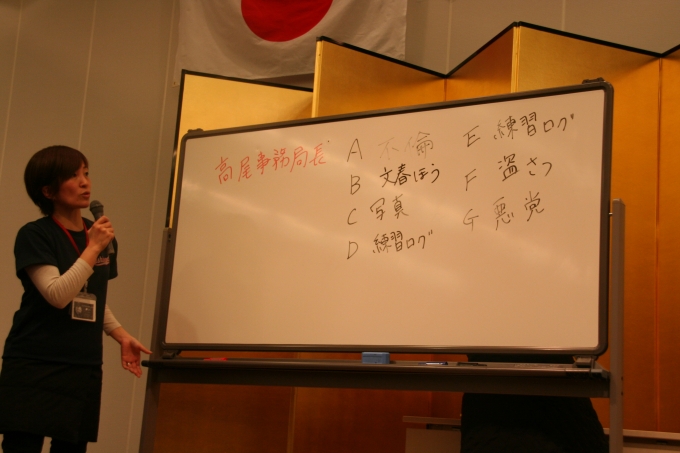 高尾事務局長
A 不倫
B 文春ほう
C 写真
D 練習ログ
E 練習ログ
F 盗さつ
G 悪党